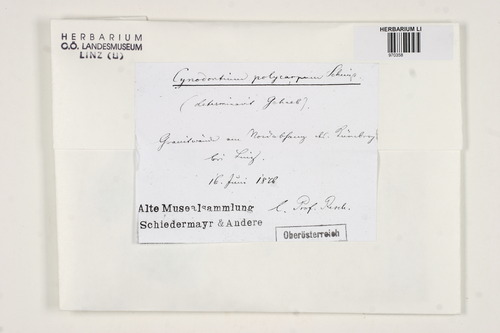 HERBARIUM
O.Ö. LANDESMUSEUM
LINZ (B)
HERBARIUM LI
Cynodontium polycarpum Schimp.
(determinavit Geheeb).
Granitwände am Nordabhang
bei Linz.
16. Juni 1872
Alte Musealsammlung
Schiedermayr & Andere
l. Prof. Resch.
Oberösterreich